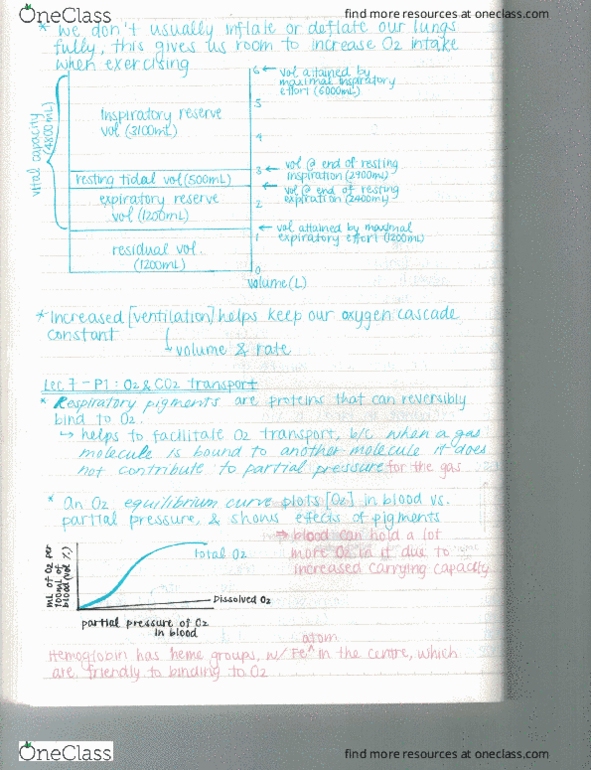 OneClass
find more resources at oneclass.com
* We don't usually inflate or deflate our lungs
fully, this gives us room to increase O2 intake
when exercising
vital capacity
(4800mL)
Inspiratory reserve
vol (3100mL)
resting tidal vol (500mL)
expiratory reserve
vol (1200mL)
residual vol.
(1200mL)
6 ← vol attained by
maximal inspiratory
effort (6000mL)
5
4
3 ← vol @ end of resting
inspiration (2900mL)
← vol @ end of resting
expiration (2400mL)
2
← vol attained by maximal
1 expiratory effort (1200mL)
0
volume (L)
* Increased [ventilation] helps keep our oxygen cascade
constant
↳ volume & rate
Lec 7 - P1 : O2 & CO2 Transport
* Respiratory pigments are proteins that can reversibly
bind to O2.
↳ helps to facilitate O2 transport, b/c when a gas
molecule is bound to another molecule it does
not contribute to partial pressure for the gas
* An O2 equilibrium curve plots [O2] in blood vs.
partial pressure, & shows effects of pigments
⇒ blood can hold a lot
more O2 in it due to
increased carrying capacity
mL of O2 per
100mL of
blood (vol %)
Total O2
Dissolved O2
partial pressure of O2
in blood
atom
Hemoglobin has heme groups, w/ Fe^ in the centre, which
are friendly to binding to O2
OneClass
find more resources at oneclass.com